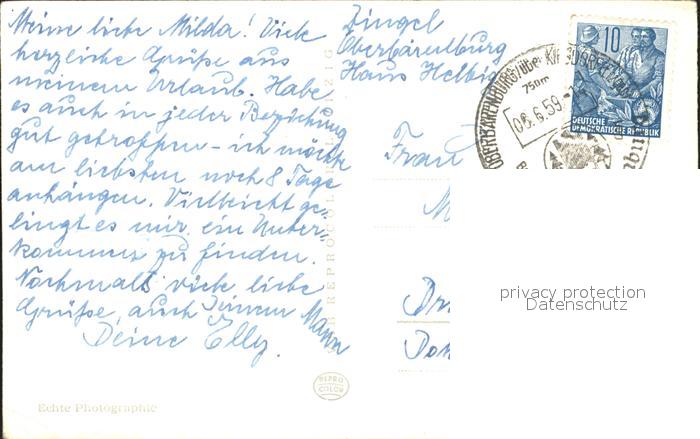 Meine liebe Milda! Viele
herzliche Grüße aus
meinem Urlaub. Habe
es auch in jeder Beziehung
gut getroffen – ich möchte
am liebsten noch 8 Tage
anhängen. Vielleicht ge-
lingt es mir ein Unter-
kommen zu finden.
Nochmals viele liebe
Grüße, auch Deinem Mann
Deine Elly.
Zingel
Oberbärenburg
Haus Helbig
Frau
M
Dr
Echte Photographie
REPROCOLOR LEIPZIG
REPRO
COLOR
OBERBÄRENBURG über KIPSDORF
750m
06.6.59
10
DEUTSCHE
DEMOKRATISCHE REPUBLIK
privacy protection
Datenschutz